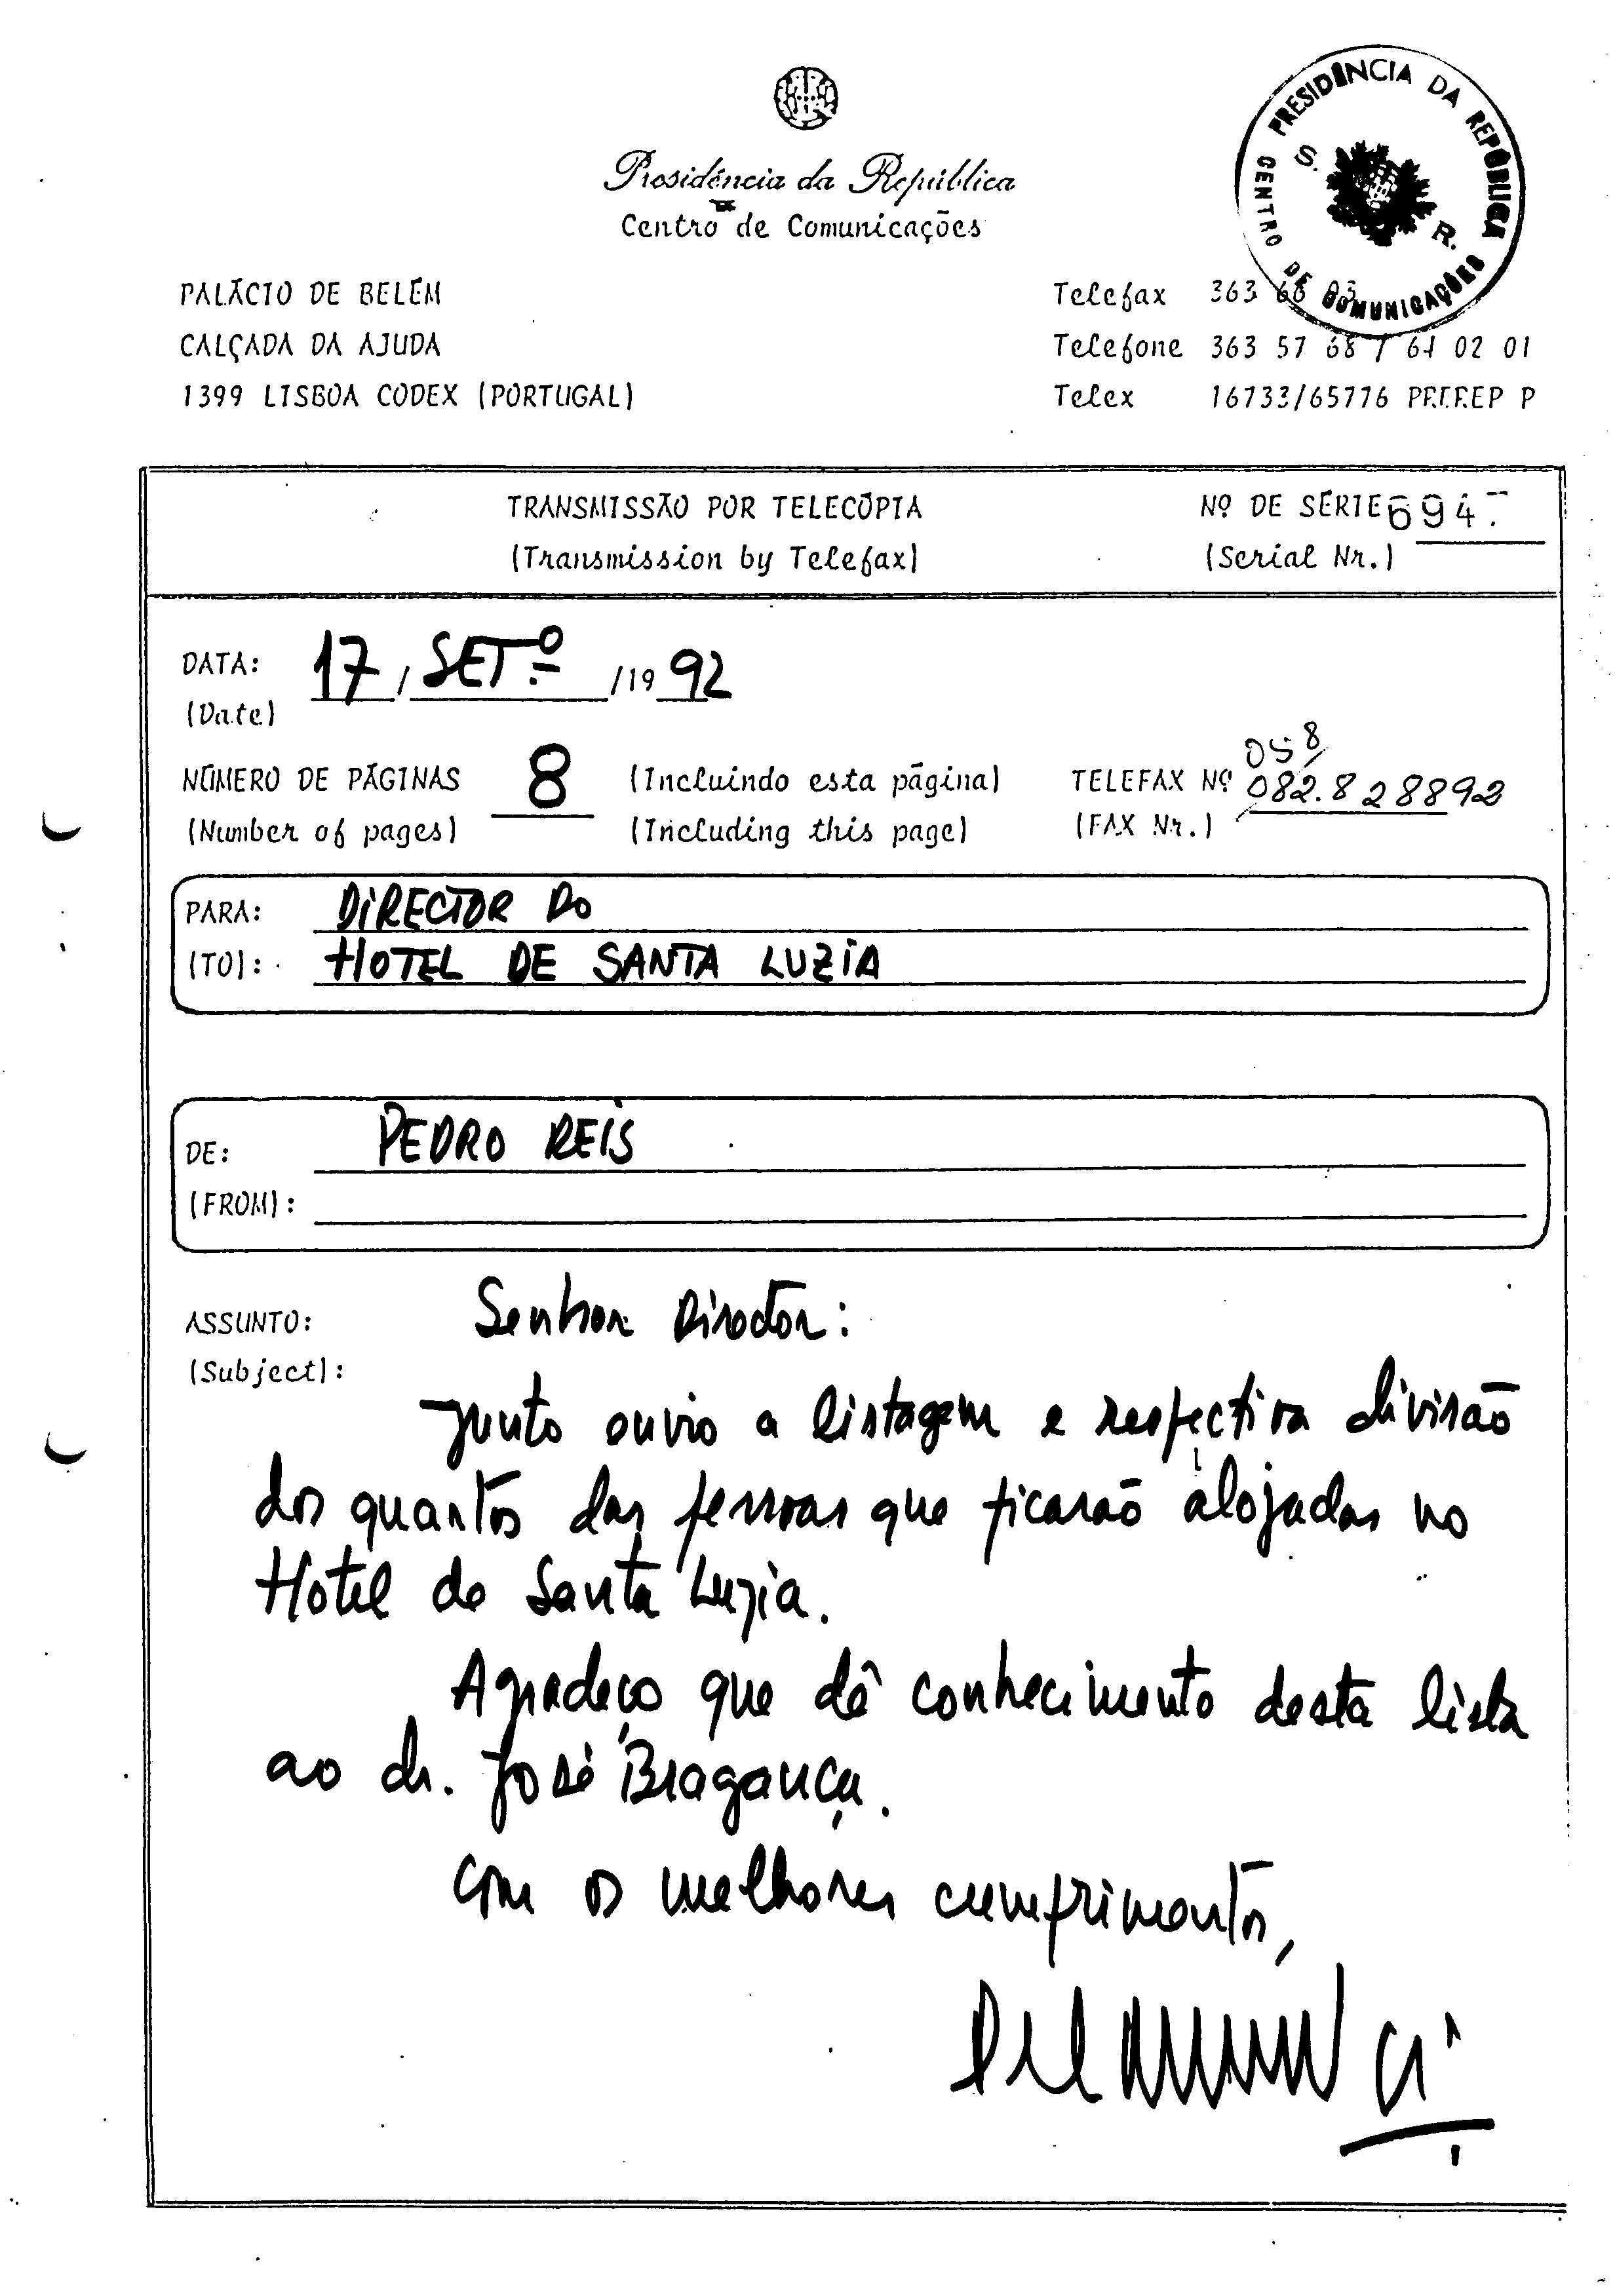 Presidência da República
Centro de Comunicações
PRESIDÊNCIA DA REPÚBLICA
S. R.
CENTRO DE COMUNICAÇÕES
PALÁCIO DE BELÉM
CALÇADA DA AJUDA
1399 LISBOA CODEX (PORTUGAL)
Telefax 363 66 03
Telefone 363 57 68 / 61 02 01
Telex 16733/65776 PREREP P
TRANSMISSÃO POR TELECÓPIA Nº DE SÉRIE 694.
(Transmission by Telefax) (Serial Nr.)
DATA: 17 / SETº / 19 92
(Date)
058/
NÚMERO DE PÁGINAS 8 (Incluindo esta página) TELEFAX Nº 082.828892
(Number of pages) (Including this page) (FAX Nr.)
PARA: DIRECTOR DO
(TO): HOTEL DE SANTA LUZIA
DE: PEDRO REIS
(FROM):
ASSUNTO: Senhor Director:
(Subject):
Junto envio a listagem e respectiva divisão
dos quartos das pessoas que ficarão alojadas no
Hotel de Santa Luzia.
Agradeço que dê conhecimento desta lista
ao dr. José Bragança.
Com os melhores cumprimentos,